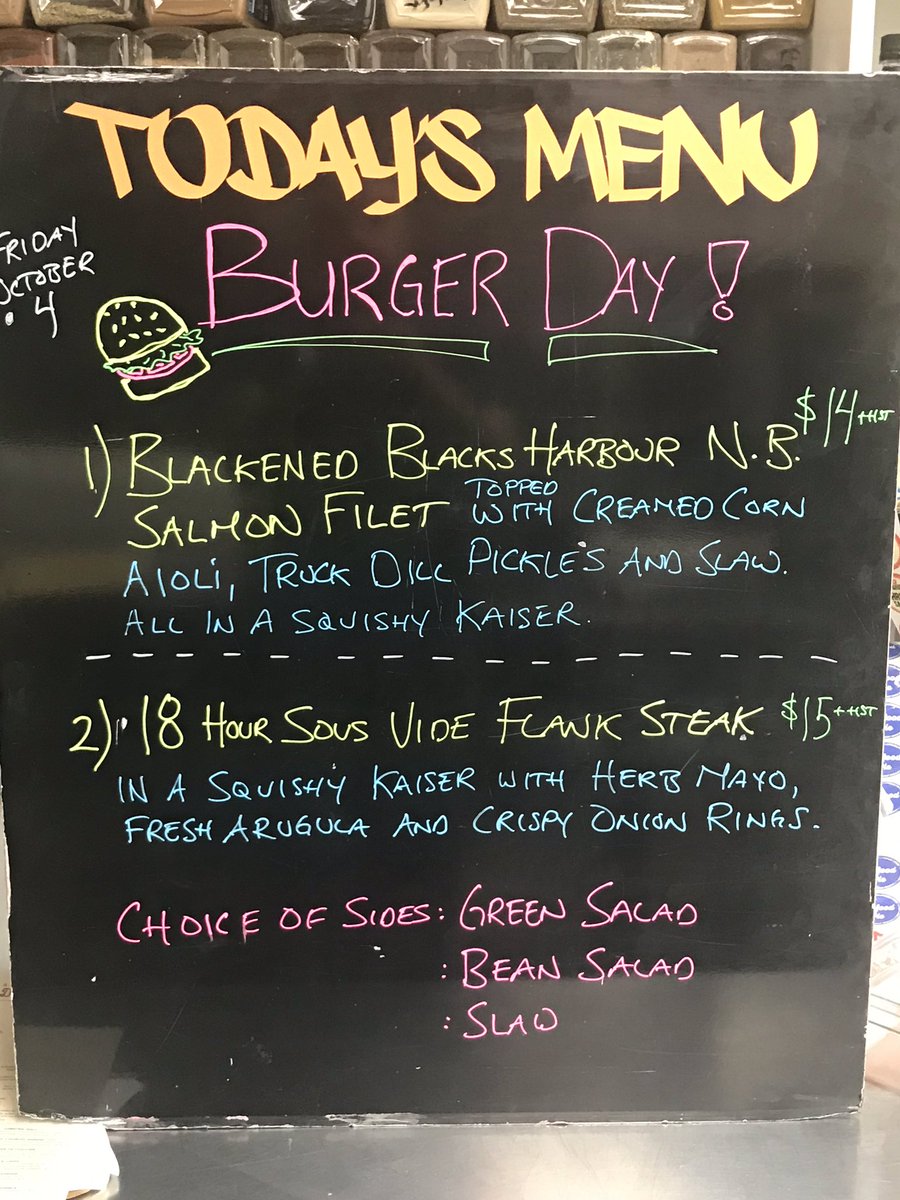 TODAY'S MENU
FRIDAY
OCTOBER
4
BURGER DAY!
$14 +HST
1) BLACKENED BLACKS HARBOUR N.B.
SALMON FILET TOPPED WITH CREAMED CORN
AIOLI, TRUCK DILL PICKLES AND SLAW.
ALL IN A SQUISHY KAISER.
2) 18 HOUR SOUS VIDE FLANK STEAK $15 +HST
IN A SQUISHY KAISER WITH HERB MAYO,
FRESH ARUGULA AND CRISPY ONION RINGS.
CHOICE OF SIDES: GREEN SALAD
: BEAN SALAD
: SLAW